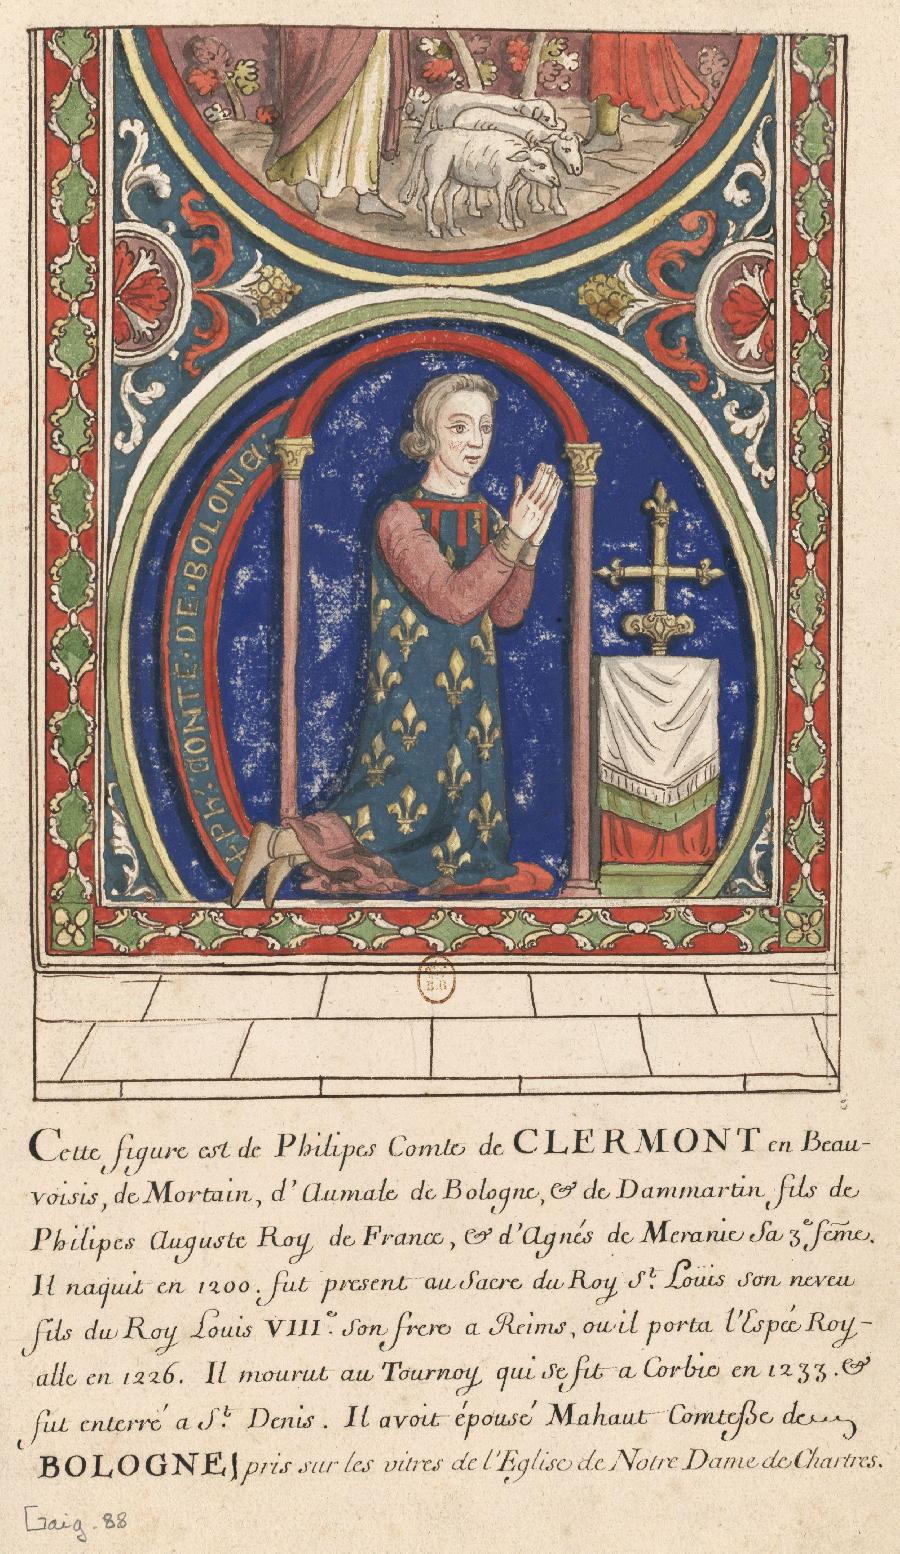 PH'. CONTE · DE · BOLONG
B.R
Cette figure est de Philipes Comte de CLERMONT en Beau-
voisis, de Mortain, d'Aumale de Bologne, & de Dammartin fils de
Philipes Auguste Roy de France, & d'Agnés de Meranie Sa 3e fem̃e.
Il naquit en 1200. fut present au Sacre du Roy St. Loüis son neveu
fils du Roy Louis VIIIe. son frere a Reims, ou il porta l'Espée Roy-
alle en 1226. Il mourut au Tournoy qui se fit a Corbie en 1233. &
fut enterré a St. Denis. Il avoit épousé Mahaut Comteße de
BOLOGNE, pris sur les vitres de l'Eglise de Notre Dame de Chartres.
Gaig. 88